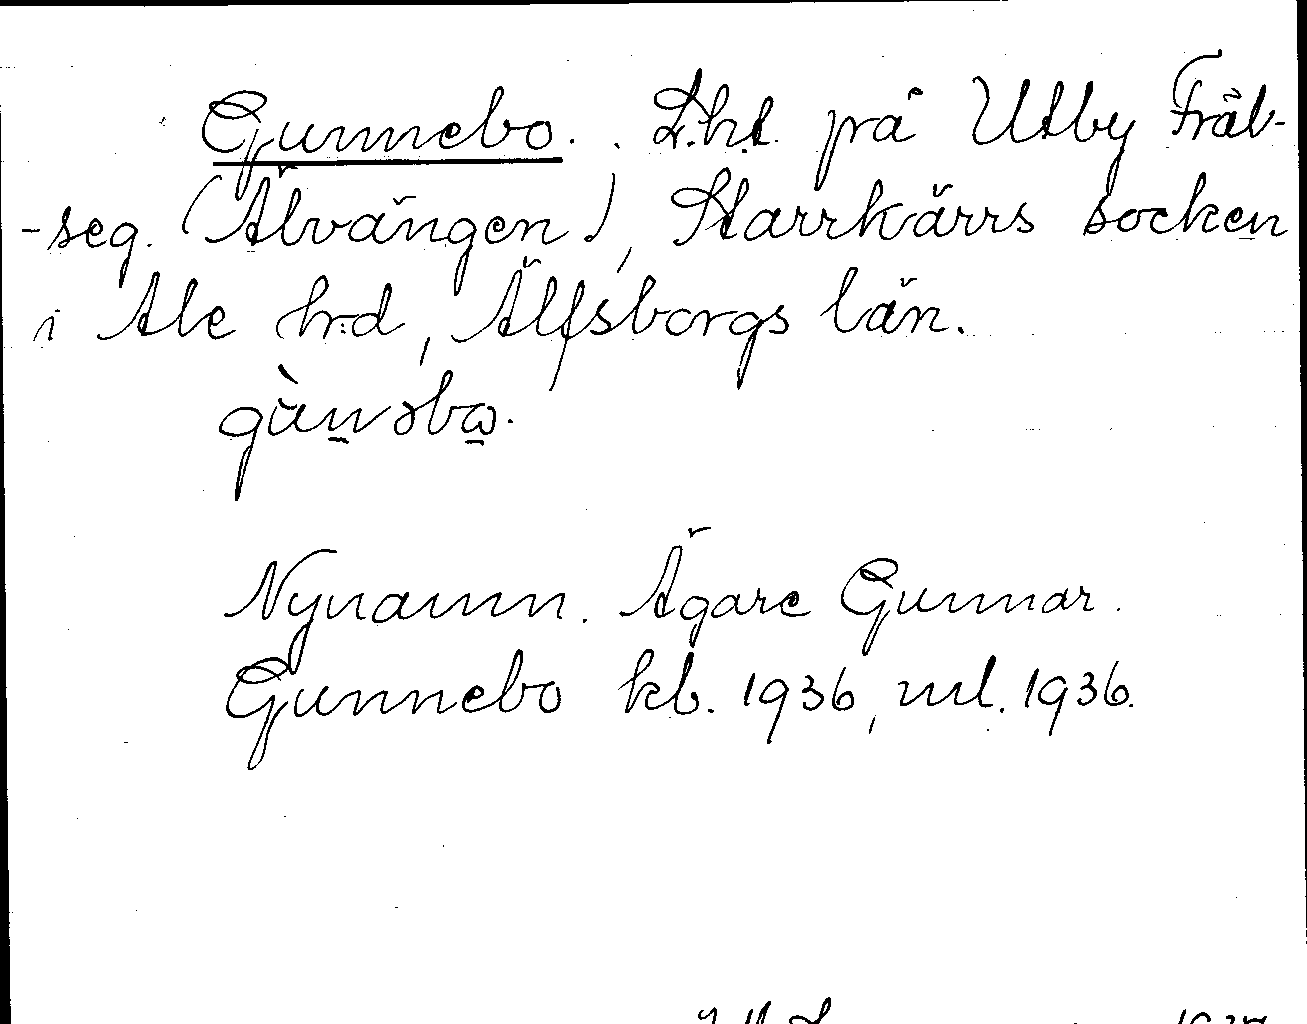 Gunnebo. L.h.t på Utby Fräl-
-seg. (Älvängen), Starrkärrs socken
i Ale hrd, Älfsborgs län.
gùn̰əbω̰.
Nynamn. Ägare Gunnar.
Gunnebo kb. 1936, ml. 1936.